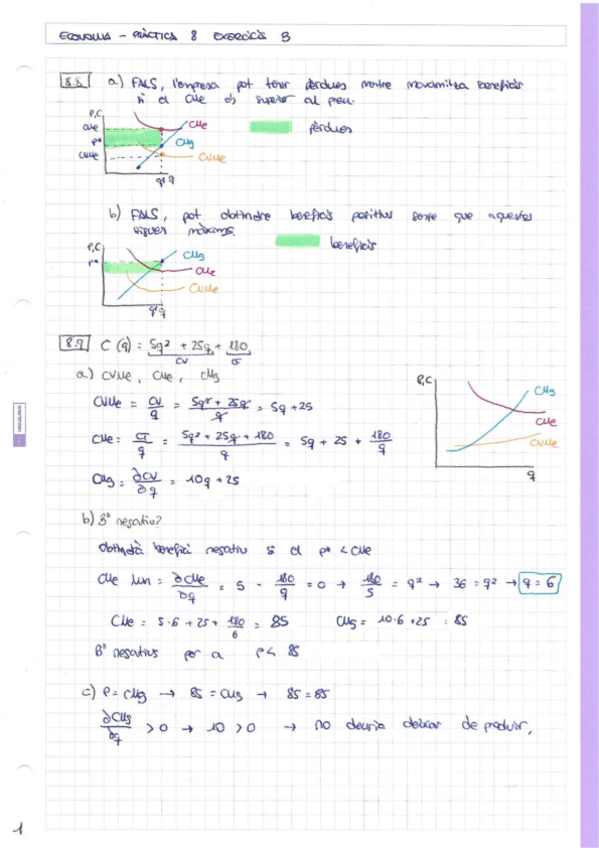 ECONOMIA - PRÀCTICA 8 EXERCICIS 3
8.8. a) FALS, l'empresa pot tenir pèrdues mentre maximitza beneficis
si el CMe és superior al preu.
P,C
CMe
CMe
pèrdues
P*
CMg
CVMe
CVMe
q* q
b) FALS, pot obtindre beneficis positius sense que aquestos
siguen màxims.
beneficis
P,C
CMg
P*
CMe
CVMe
q* q
8.9. C(q) = 5q² + 25q + 180
CV CF
a) CVMe, CMe, CMg
P,C
CMg
CVMe = CV/q = 5q² + 25q / q = 5q + 25
CMe
CVMe
CMe = CT/q = 5q² + 25q + 180 / q = 5q + 25 + 180/q
q
CMg = ∂CV/∂q = 10q + 25
b) Bº negatiu?
Obtindrà benefici negatiu si el p* < CMe
CMe mín = ∂CMe/∂q = 5 - 180/q = 0 → 180/5 = q² → 36 = q² → q = 6
CMe = 5·6 + 25 + 180/6 = 85 CMg = 10·6 + 25 = 85
Bº negatius per a P < 85
c) P = CMg → 85 = CMg → 85 = 85
∂CMg/∂q > 0 → 10 > 0 → NO deuria deixar de produir.
1